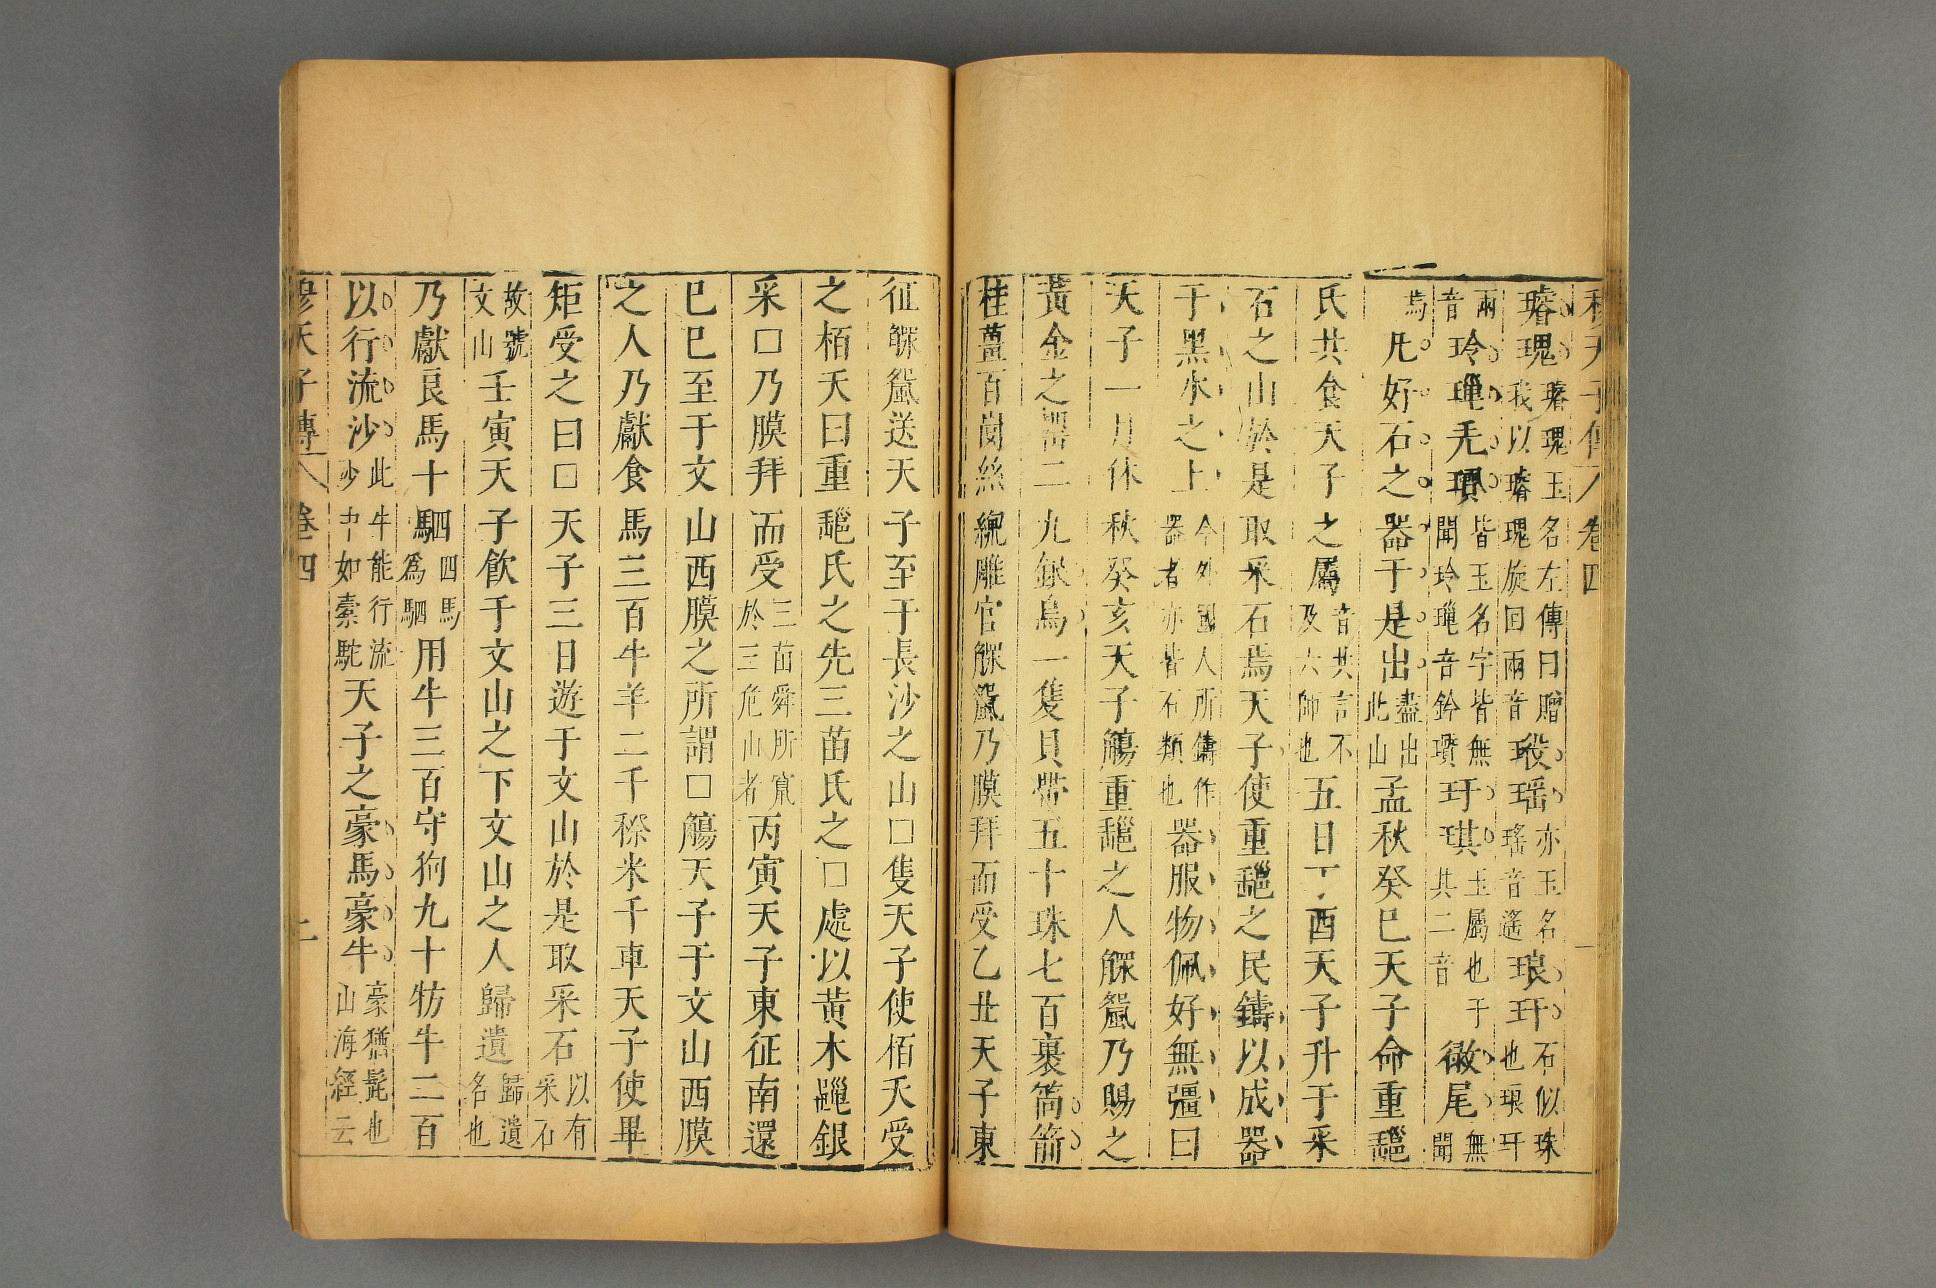 穆天子傳 卷四
璿瑰璿瑰玉名左傳曰贈我以璿瑰旋回兩音㻛瑶亦玉名瑤音遙琅玕石似珠也琅玕
兩音玲𤫩旡瓆皆玉名字皆無聞玲𤫩音鈐瓚玗琪玉屬也于其二音徽尾無聞
焉凡好石之器于是出盡出此山孟秋癸巳天子命重𨛫
氏共食天子之屬音共言不及六師也五日丁酉天子升于采
石之山於是取采石焉天子使重𨛫之民鑄以成器
于黑水之上今外國人所鑄作器者亦皆石類也器服物佩好無彊曰
天子一月休秋癸亥天子觴重𨛫之人鰥鴦乃賜之
黃金之罌二九銀烏一隻貝帶五十珠七百裹筩箭
桂薑百崗絲䌙雕官鰥鴦乃膜拜而受乙丑天子東
征鰥鴦送天子至于長沙之山口隻天子使栢夭受
之栢夭曰重𨛫氏之先三苗氏之口處以黃木𨤍銀
采口乃膜拜而受三苗舜所竄於三危山者丙寅天子東征南還
巳巳至于文山西膜之所謂口觴天子于文山西膜
之人乃獻食馬三百牛羊二千穄米千車天子使畢
矩受之曰口天子三日遊于文山於是取采石以有采石
故號文山壬寅天子飲于文山之下文山之人歸遺歸遺名也
乃獻良馬十駟四馬爲駟用牛三百守狗九十牥牛二百
以行流沙此牛能行流沙中如槖駝天子之豪馬豪牛豪猶髭也山海經云
穆天子傳 卷四 二